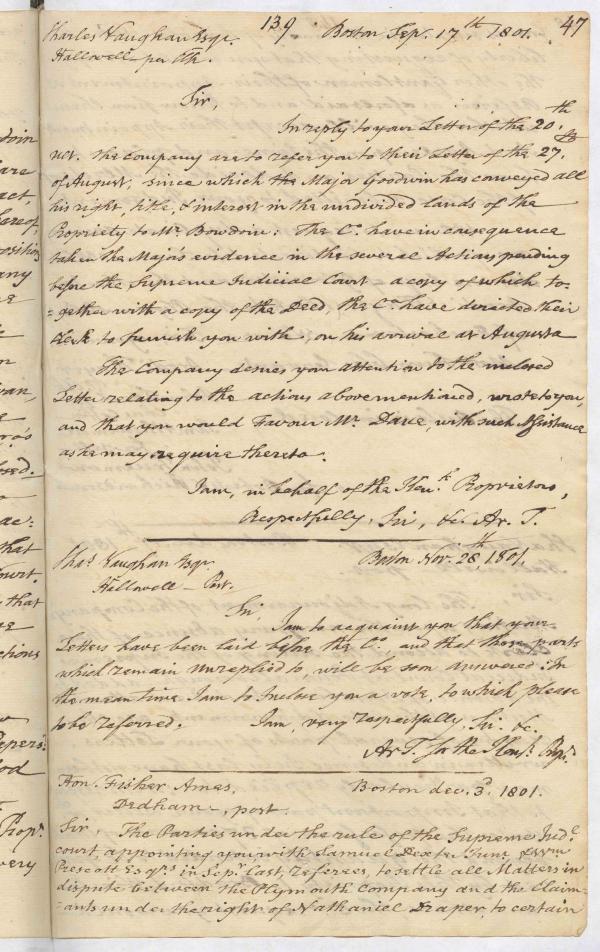 139 47
Charles Vaughan Esqr. Boston Sepr. 17th. 1801.
Hallowell - per
Sir,
In reply to your Letter of the 20th
the Company are to refer you to their Letter of the 27.
of August, since which the Major Goodwin has conveyed all
his right, title, & interest in the undivided lands of the
Propriety to Mr. Bowdoin: The Co. have in consequence
taken the Major's evidence in the several Actions pending
before the Supreme Judicial Court - a copy of which to-
=gether with a copy of the Deed, the Co. have directed their
Clerk to furnish you with, on his arrival at Augusta
The Company desires your attention to the inclosed
Letter relating to the actions abovementioned, wrote to you,
and that you would Favour Mr. Dane, with such Assistance
as he may require thereto.
I am, in behalf of the Kenk. Proprietors,
Respectfully, Sir, &c. Ar. T.
Chas. Vaughan Esqr. Boston Nov. 28th. 1801.
Hallowell - Post.
Sir,
I am to acquaint you that your
Letters have been laid before the Co., and that those parts
which remain unreplied to, will be soon answered: In
the mean time I am to Inclose you a vote, to which please
to be referred. I am, very respectfully, Sir. &c.
Ar T. for the Kenk. Propr.
Hon. Fisher Ames, Boston dec. 3d. 1801.
Dedham -, post.
Sir, The Parties under the rule of the Supreme Judl.
court, appointing you with Samuel Dexter Junr. & Wm
Prescott Esqrs in Sepr last, Referees, to settle all Matters in
dispute between the Plymouth Company and the Claim-
=ants under the right of Nathaniel Draper, to certain